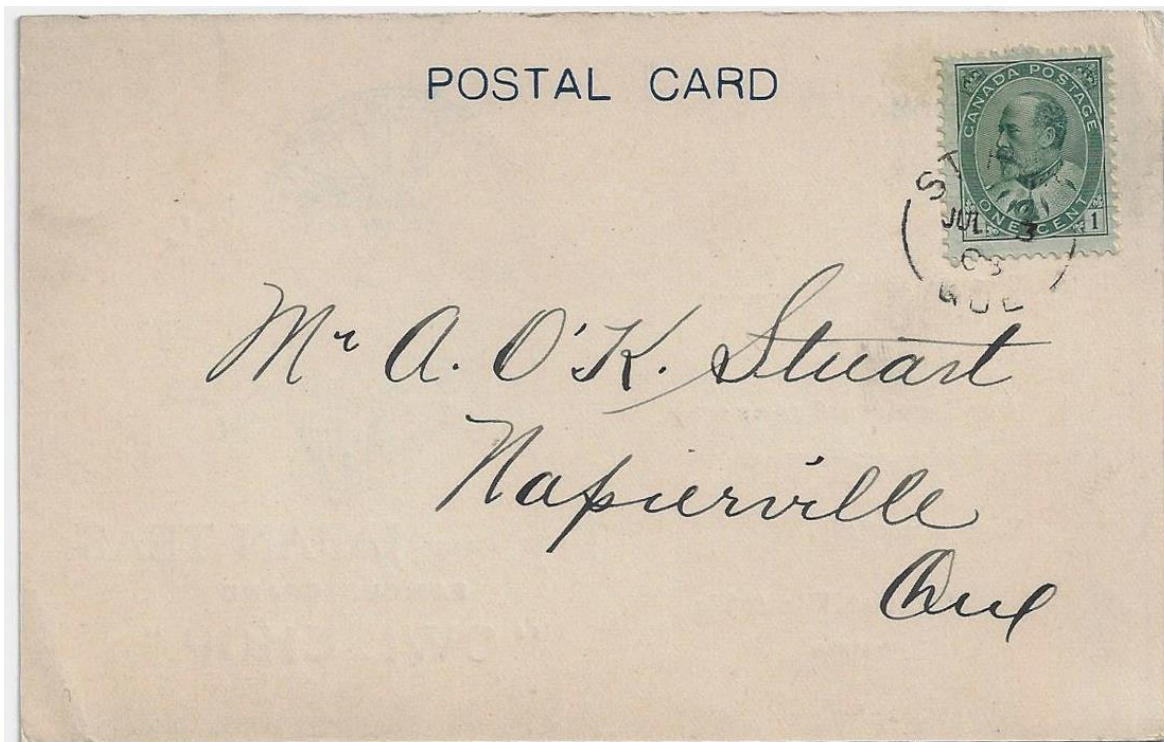 POSTAL CARD
CANADA POSTAGE
ONE CENT
1
JUL 3
03
QUE
Mr A. O'K. Stuart
Napierville
Que